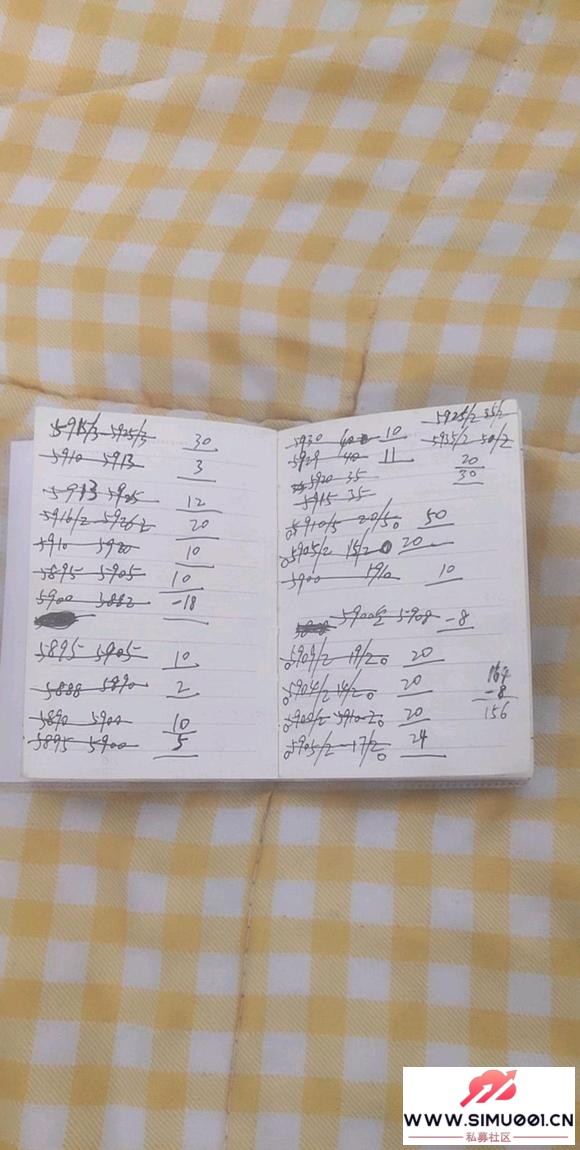 5915/3 5925/3 30
5910 5913 3
5913 5925 12
5916/2 5926/2 20
5910 5920 10
5895 5905 10
5900 5882 -18
5895 5905 10
5888 5890 2
5890 5900 10
5895 5900 5
5930 40 10
5929 40 11
5920 35
5915 35
5910/5 20/5 50
5905/2 15/2 20
5900 1910 10
5900 5908 -8
5909/2 19/2 20
5904/2 14/2 20
5900/2 5910-2 20
5905/2 -17/2 24
5925/2 35/2
5935/2 50/2
20
30
164
-8
156
WWW.SIMU001.CN
私募社区